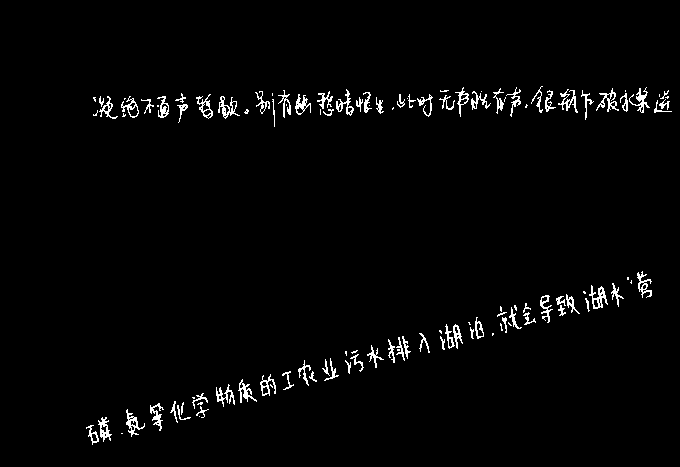 凝绝不通声暂歇。别有幽愁暗恨生,此时无声胜有声,银瓶乍破水浆迸
磷、氮等化学物质的工农业污水排入湖泊,就会导致湖水“营